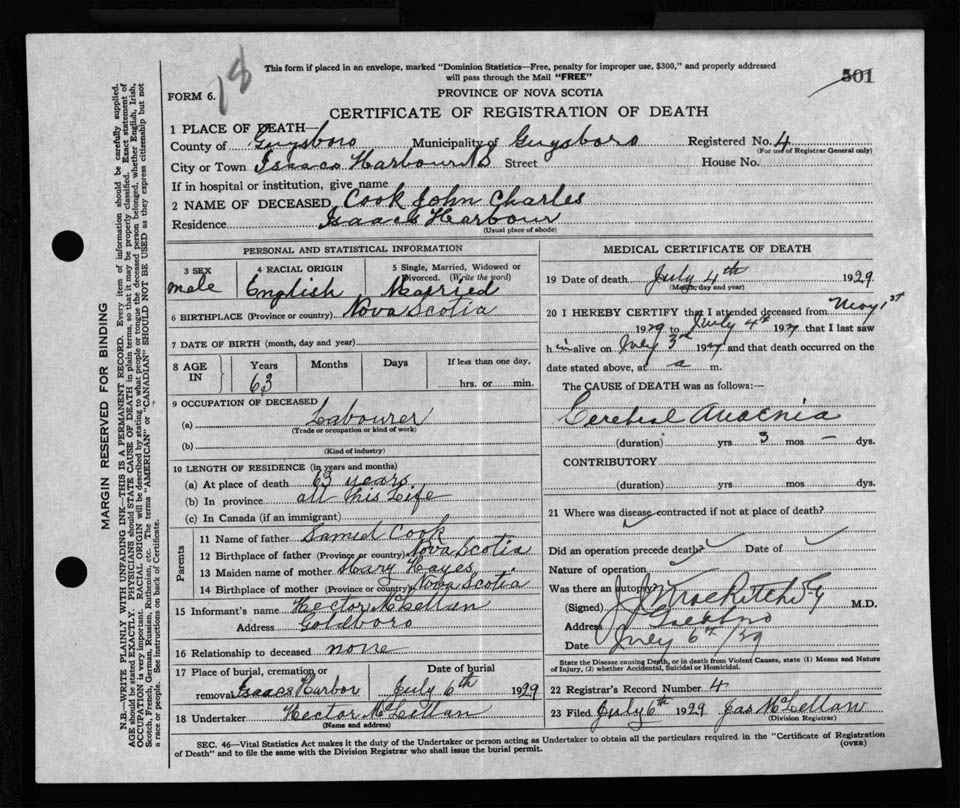 18
This form if placed in an envelope, marked "Dominion Statistics—Free, penalty for improper use, $300," and properly addressed
will pass through the Mail "FREE"
501
FORM 6.
PROVINCE OF NOVA SCOTIA
CERTIFICATE OF REGISTRATION OF DEATH
1 PLACE OF DEATH—
County of Guysboro Municipality of Guysboro Registered No. 4
(For use of Registrar General only)
City or Town Isaacs Harbour Street House No.
If in hospital or institution, give name
2 NAME OF DECEASED Cook John Charles
Residence Isaacs Harbour
(Usual place of abode)
PERSONAL AND STATISTICAL INFORMATION
3 SEX 4 RACIAL ORIGIN 5 Single, Married, Widowed or
Divorced. (Write the word)
male English Married
6 BIRTHPLACE (Province or country) Nova Scotia
7 DATE OF BIRTH (month, day and year)
8 AGE IN Years Months Days If less than one day,
63 hrs. or min.
9 OCCUPATION OF DECEASED
(a) Labourer
(Trade or occupation or kind of work)
(b)
(Kind of industry)
10 LENGTH OF RESIDENCE (in years and months)
(a) At place of death 63 years
(b) In province all his Life
(c) In Canada (if an immigrant)
Parents
11 Name of father Samuel Cook
12 Birthplace of father (Province or country) Nova Scotia
13 Maiden name of mother Mary Hayes
14 Birthplace of mother (Province or country) Nova Scotia
15 Informant's name Hector McLellan
Address Goldboro
16 Relationship to deceased none
17 Place of burial, cremation or Date of burial
removal Isaacs Harbor July 6th 1929
18 Undertaker Hector McLellan
(Name and address)
MEDICAL CERTIFICATE OF DEATH
19 Date of death July 4th 1929
(Month, day and year)
20 I HEREBY CERTIFY that I attended deceased from May 1st
1929 to July 4th 1929 that I last saw
h im alive on July 3rd 1929 and that death occurred on the
date stated above, at a m.
The CAUSE of DEATH was as follows:—
Cerebral Anaemia
(duration) yrs 3 mos — dys.
CONTRIBUTORY
(duration) yrs. mos. dys.
21 Where was disease contracted if not at place of death?
Did an operation precede death? Date of
Nature of operation
Was there an autopsy?
(Signed) M.D.
Address Goldboro
Date July 6th/29
State the Disease causing Death, or in death from Violent Causes, state (1) Means and Nature
of Injury, (2) whether Accidental, Suicidal or Homicidal.
22 Registrar's Record Number 4
23 Filed July 6th 1929 Jas McLellan
(Division Registrar)
SEC. 46—Vital Statistics Act makes it the duty of the Undertaker or person acting as Undertaker to obtain all the particulars required in the "Certificate of Registration
of Death" and to file the same with the Division Registrar who shall issue the burial permit.
(OVER)
MARGIN RESERVED FOR BINDING
N.B.—WRITE PLAINLY WITH UNFADING INK—THIS IS A PERMANENT RECORD. Every item of information should be carefully supplied.
AGE should be stated EXACTLY. PHYSICIANS should STATE CAUSE OF DEATH in plain terms, so that it may be properly classified. Exact statement of
OCCUPATION is very important. RACIAL ORIGIN will be described by stating to what people or tongue the deceased person belonged, whether English, Irish,
Scotch, French, German, Russian, Ruthenian, etc. The terms "AMERICAN" or "CANADIAN" SHOULD NOT BE USED as they express citizenship but not
a race or people. See instructions on back of Certificate.